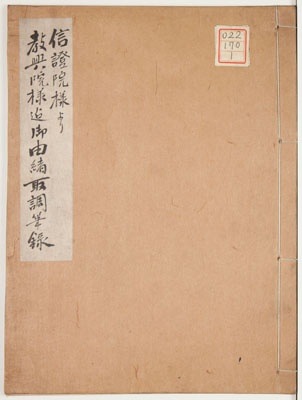 信證院様より
教興院様迄御由緒取調筆録
022
170
1